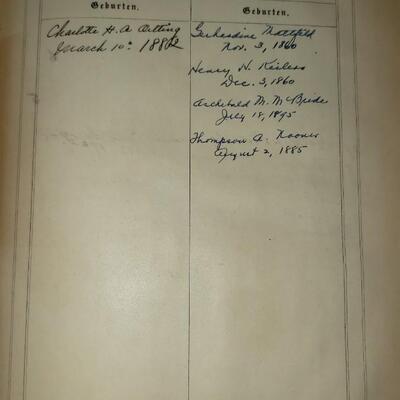 Geburten.
Charlotte H. A. Oetting
March 10th 1882
Geburten.
Gerhardine Nottfeld
Nov. 3, 1860
Henry H. Keiless
Dec. 3, 1860
Archibald M. McBride
July 18, 1895
Thompson A. Nooner
August 2, 1885